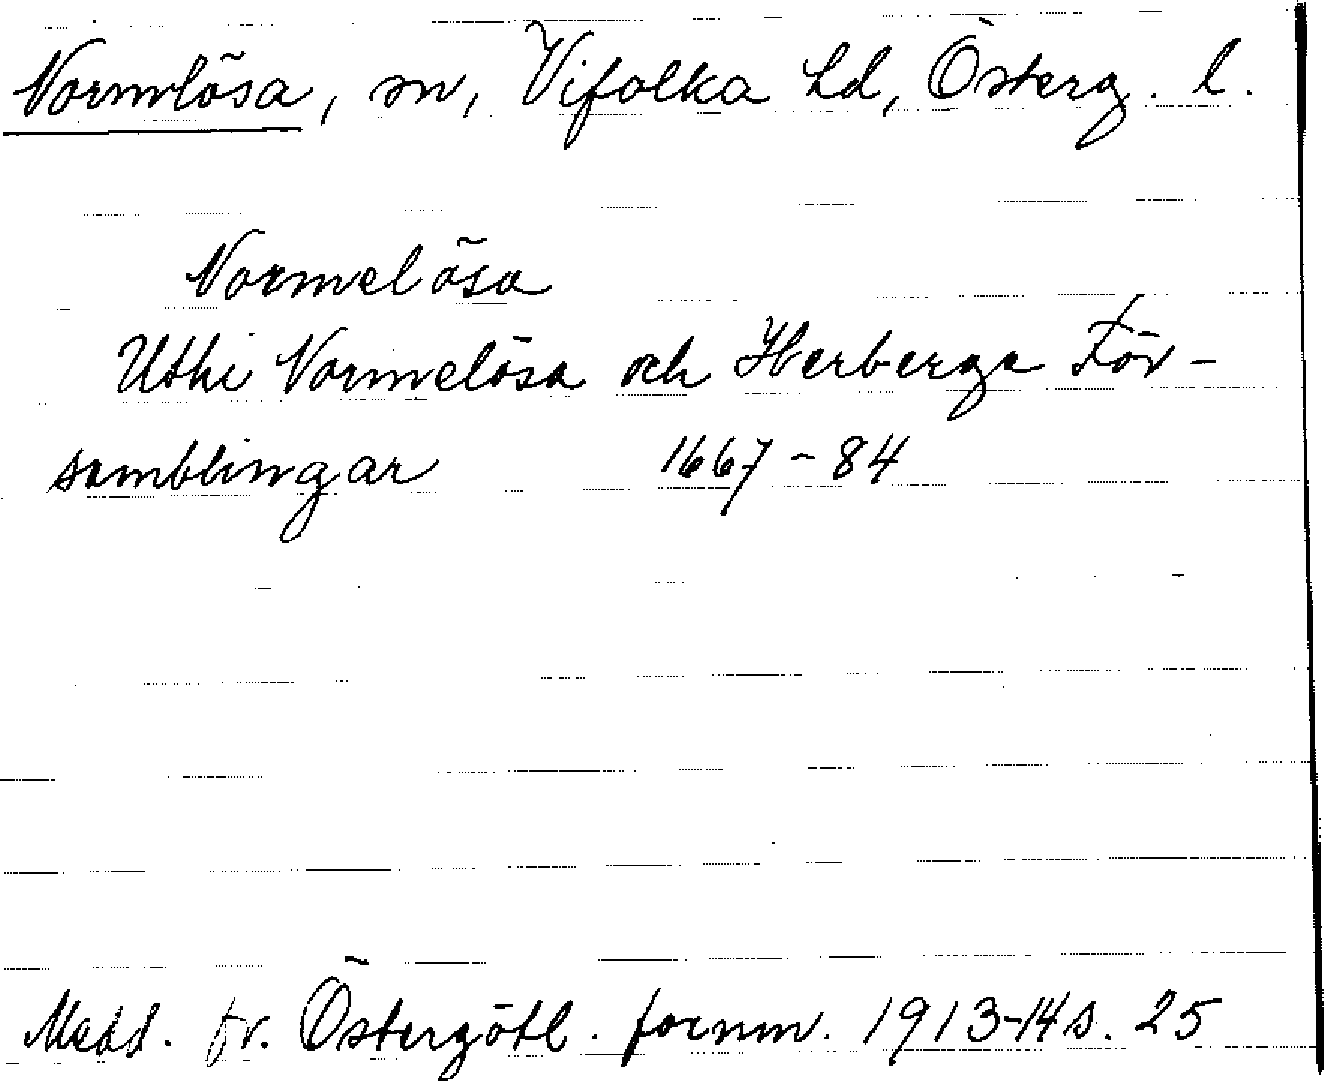 Normlösa, sn, Vifolka hd, Österg. l.
Normelösa
Uthi Normelösa och Herberga För-
samblingar 1667-84
Medd. fr. Östergötl. fornm. 1913-14 s. 25